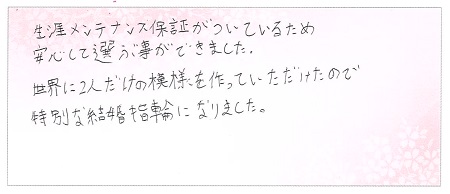 生涯メンテナンス保証がついているため
安心して選ぶ事ができました。
世界に2人だけの模様を作っていただけたので
特別な結婚指輪になりました。